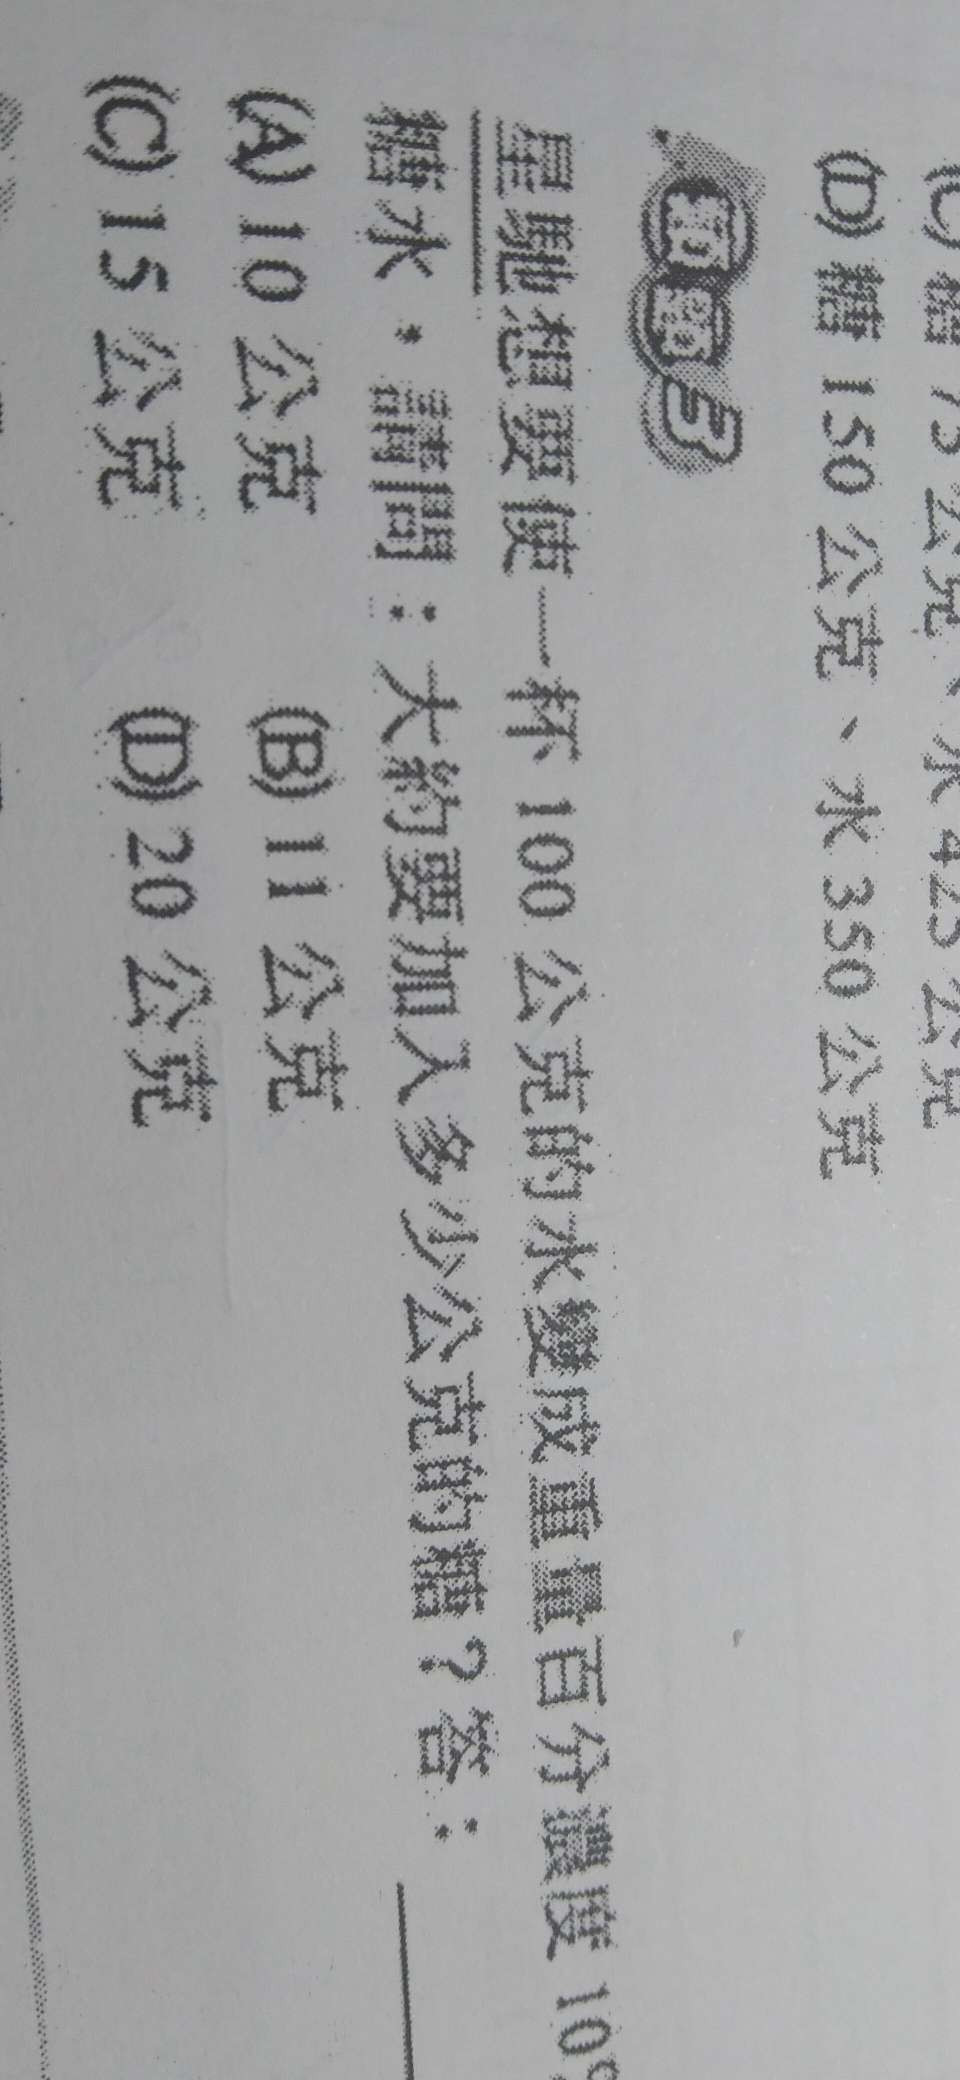 (C) 糖 75 公克、水 425 公克
(D) 糖 150 公克、水 350 公克
範例 3
星馳想要使一杯 100 公克的水變成重量百分濃度 10%
糖水。請問：大約要加入多少公克的糖？答：
(A) 10 公克 (B) 11 公克
(C) 15 公克 (D) 20 公克